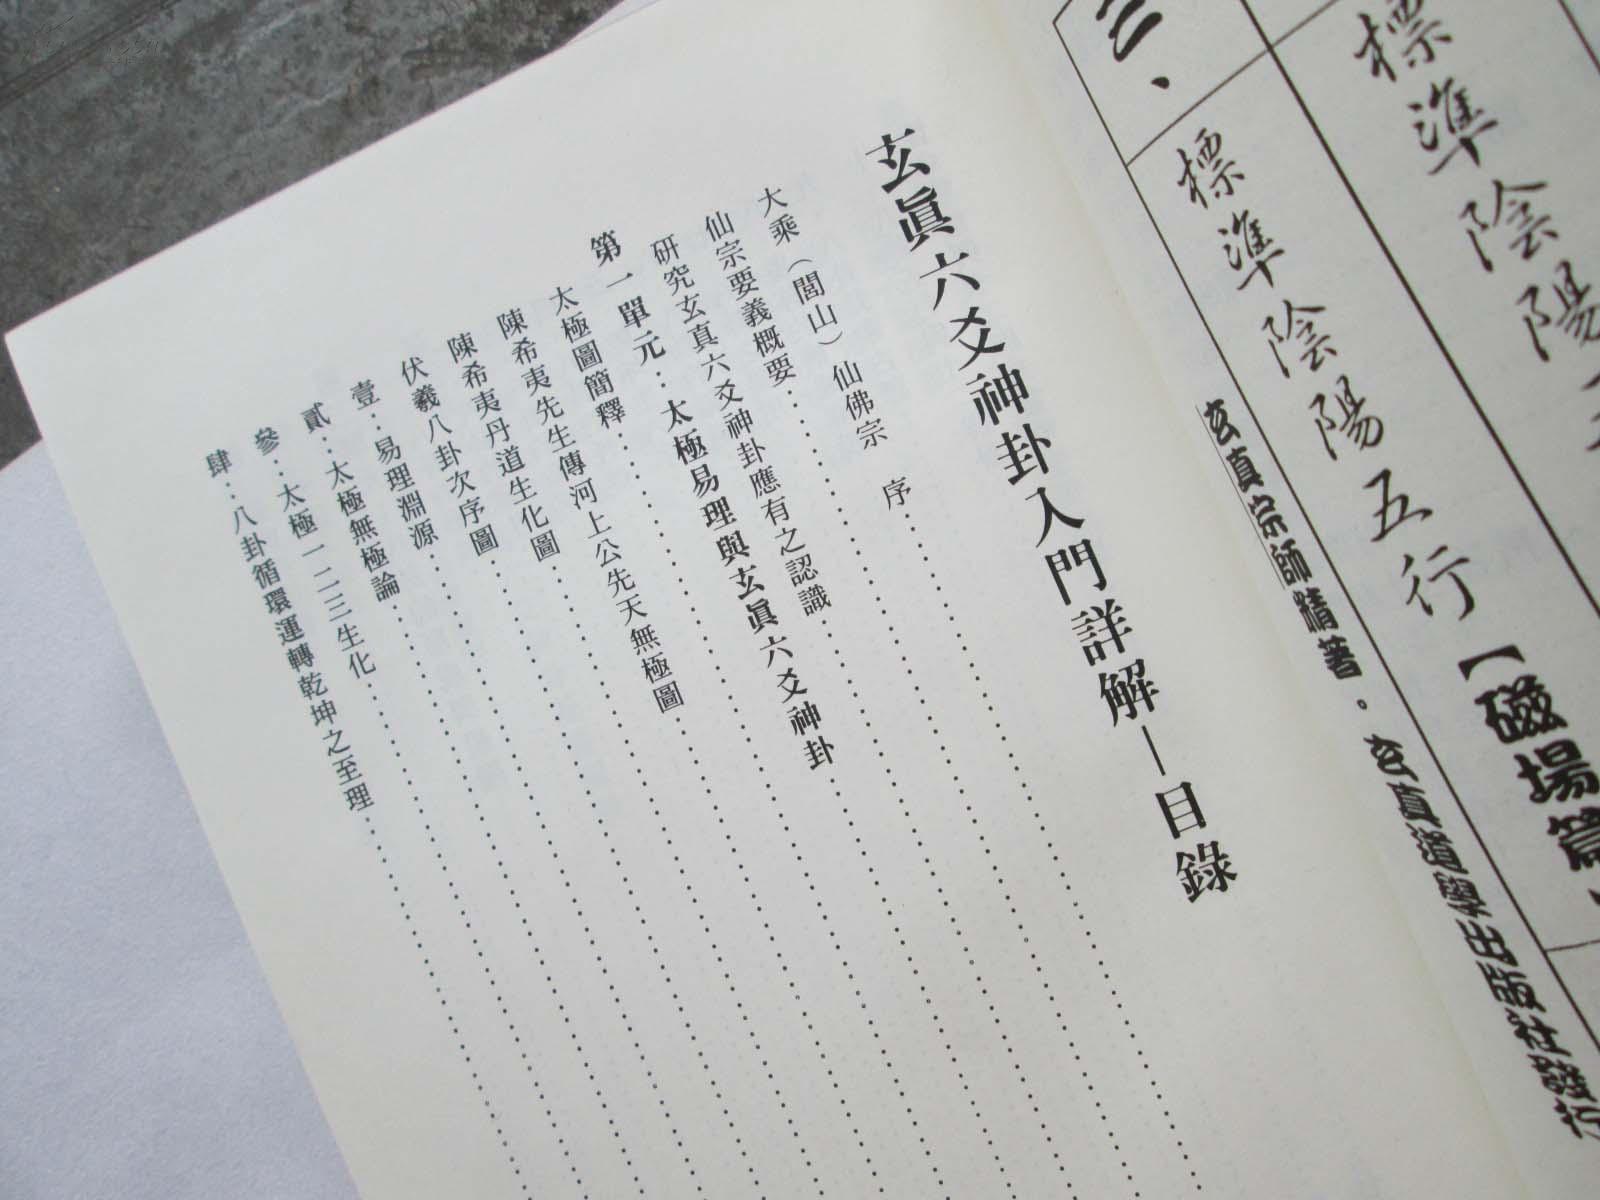 三、
標準陰陽五
標準陰陽五行【磁場篇
玄真宗師精著。玄真道學出版社發行
玄眞六爻神卦入門詳解—目錄
大乘(閭山)仙佛宗 序
仙宗要義概要
研究玄真六爻神卦應有之認識
第一單元：太極易理與玄眞六爻神卦
太極圖簡釋
陳希夷先生傳河上公先天無極圖
陳希夷丹道生化圖
伏羲八卦次序圖
壹：易理淵源
貳：太極無極論
參：太極一二三生化
肆：八卦循環運轉乾坤之至理